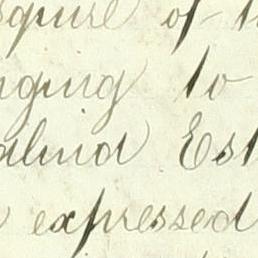 squire of t
nging to
dlind Est
expressed